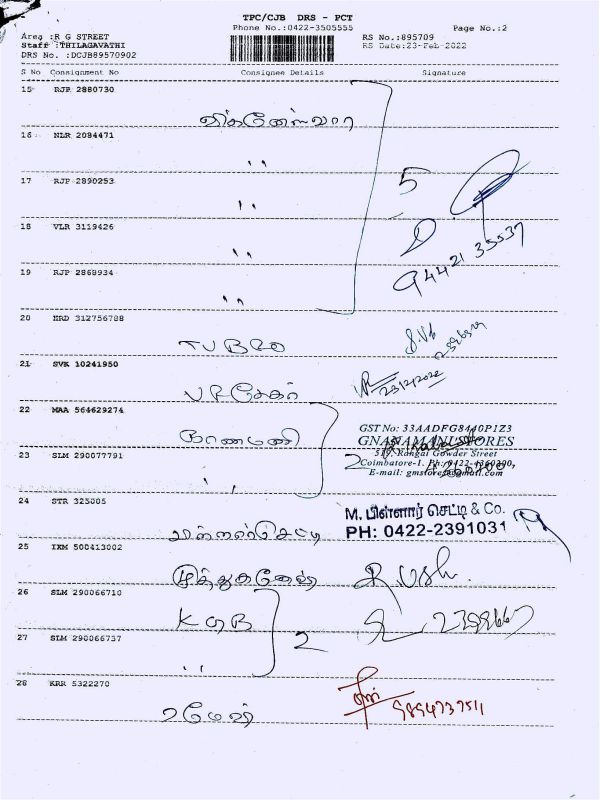 TPC/CJB DRS - PCT
Phone No.:0422-3505555 Page No.:2
Area :R G STREET RS No.:895709
Staff :THILAGAVATHI RS Date:23-Feb-2022
DRS No. :DCJB89570902
S No Consignment No Consignee Details Signature
15 RJP 2880730
விக்னேஸ்வரா
16 NLR 2084471
''
17 RJP 2890253 5
''
18 VLR 3119426
'' 94421 35537
19 RJP 2868934
''
20 HRD 312756788
21 SVK 10241950
23/2/2022
22 MAA 564629274
ஞானமணி
GST No: 33AADFG8440P1Z3
GNANAMANI STORES
23 SLM 290077791 2
Rangai Gowder Street
Coimbatore-1.
E-mail: gmstores@gmail.com
''
24 STR 325005
M. பிள்ளார் செட்டி & Co.
PH: 0422-2391031
25 IXM 500413002
26 SLM 290066710
KGB
27 SLM 290066737 2
''
28 KRR 5322270
ரமேஷ்
9894737511